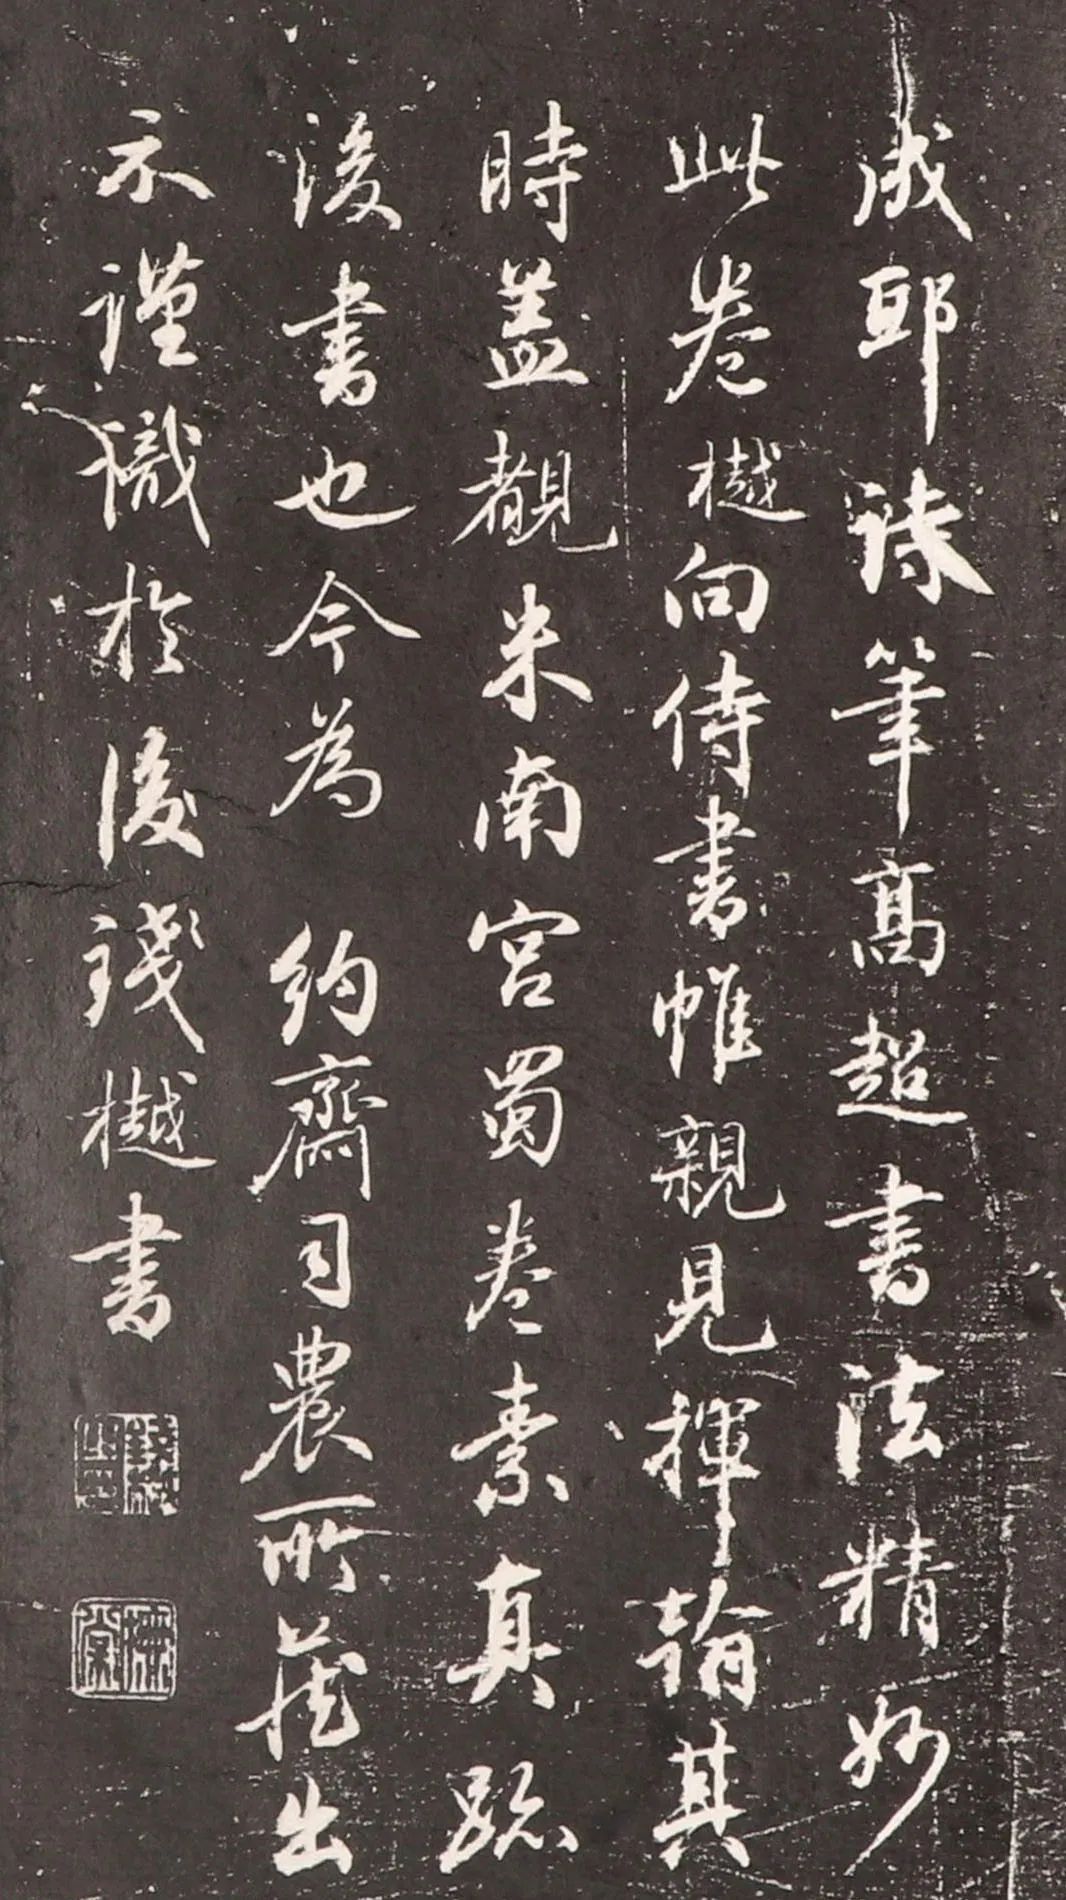 成邸詩筆高超書法精妙
此卷樾向侍書帷親見揮翰其
時蓋覩米南宮蜀卷素真跡
後書也今為 約齋司農所藏出
示謹識於後錢樾書
錢樾之印